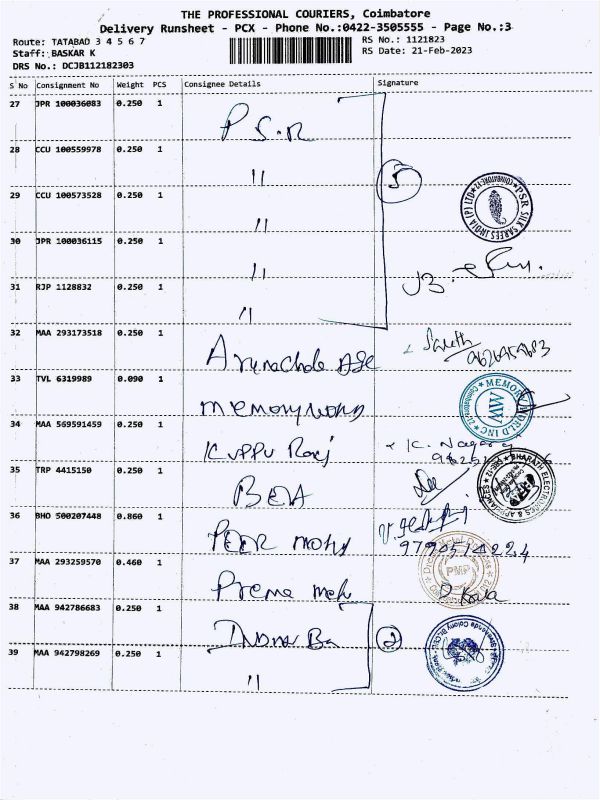 THE PROFESSIONAL COURIERS, Coimbatore
Delivery Runsheet - PCX - Phone No.:0422-3505555 - Page No.:3
Route: TATABAD 3 4 5 6 7
RS No.: 1121823
Staff: BASKAR K
RS Date: 21-Feb-2023
DRS No.: DCJB112182303
S No Consignment No Weight PCS Consignee Details Signature
27 JPR 100036083 0.250 1 P S.R
28 CCU 100559978 0.250 1 " 5
29 CCU 100573528 0.250 1 "
PSR SILK SAREES INDIA (P) LTD COIMBATORE-12
30 JPR 100036115 0.250 1 "
31 RJP 1128832 0.250 1 "
32 MAA 293173518 0.250 1
33 TVL 6319989 0.090 1 memory
MEMORY WORLD INC
MW
34 MAA 569591459 0.250 1 Kuppu Raj K.
35 TRP 4415150 0.250 1
BHARATH ELECTRONICS & APPLIANCES
36 BHO 500207448 0.860 1 PEER
37 MAA 293259570 0.460 1 Prema
PMP
38 MAA 942786683 0.250 1 2
39 MAA 942798269 0.250 1 "